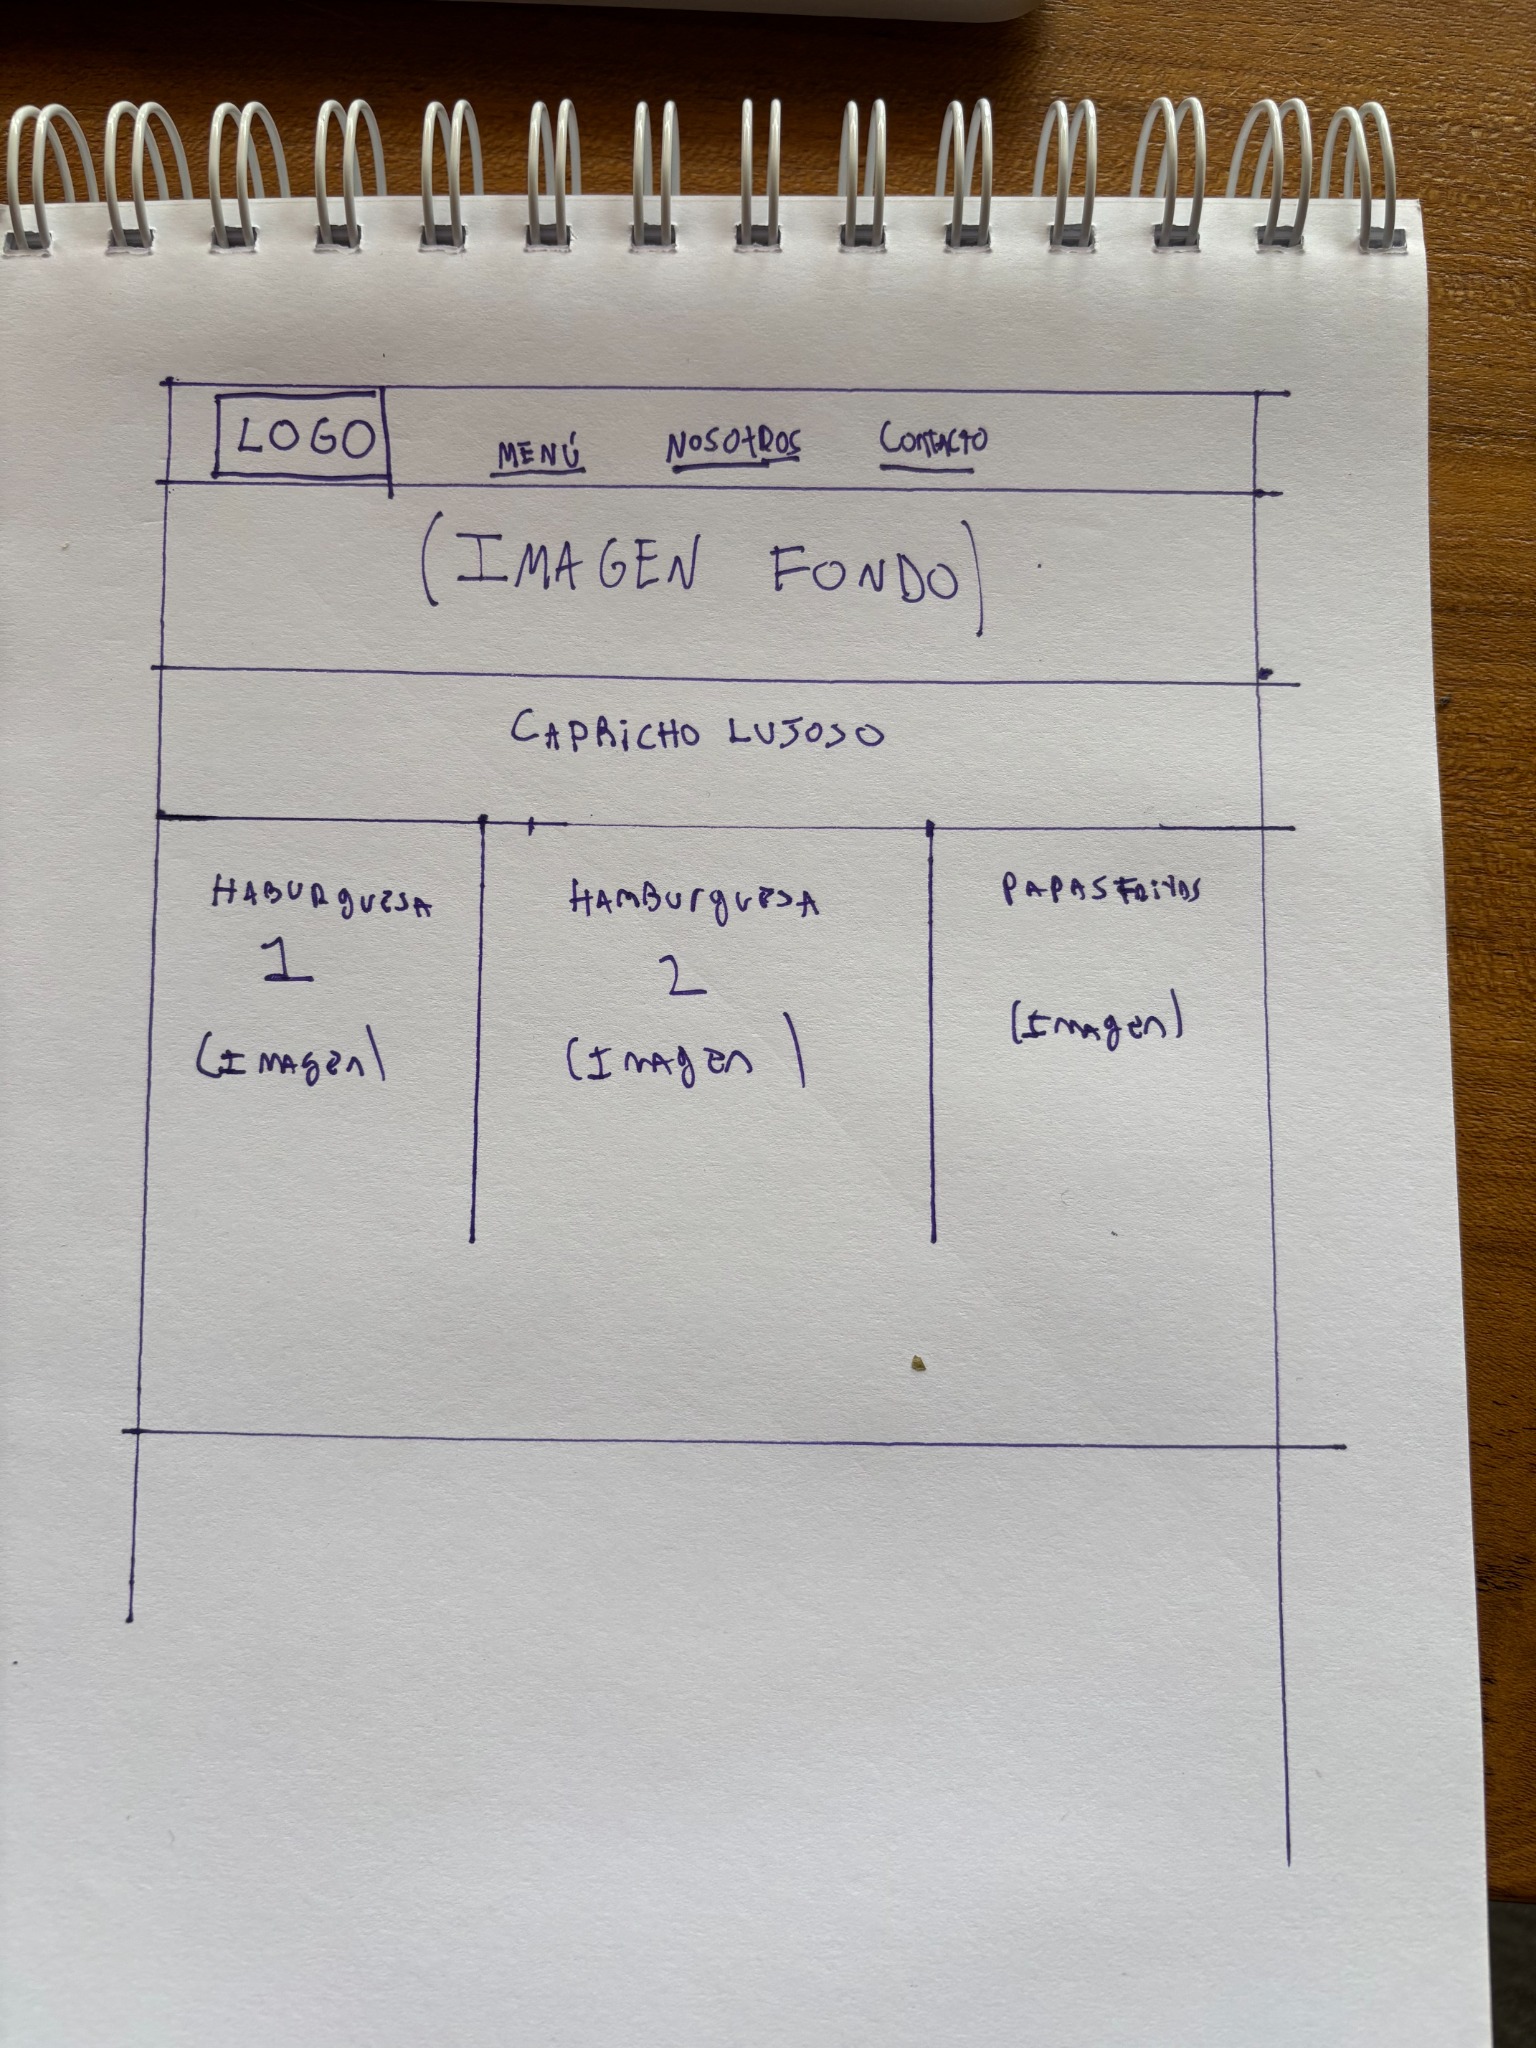 LOGO MENÚ NOSOTROS CONTACTO
(IMAGEN FONDO)
CAPRICHO LUJOSO
HABURGUESA
1
(IMAGEN)
HAMBURGUESA
2
(IMAGEN)
PAPAS FRITAS
(IMAGEN)